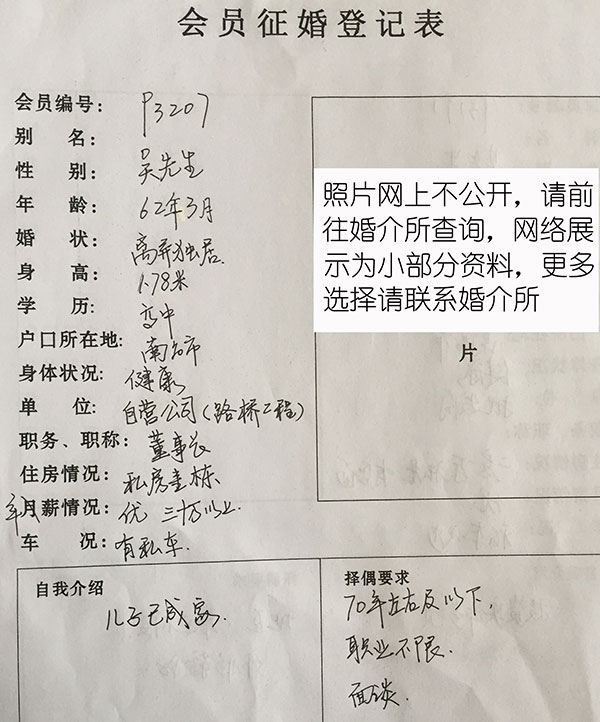 会员征婚登记表
会员编号: P3207
别 名:
性 别: 吴先生
年 龄: 62年3月
婚 状: 离异独居.
身 高: 1.78米
学 历: 高中
户口所在地: 南昌市
身体状况: 健康
单 位: 自营公司(路桥工程)
职务、职称: 董事长
住房情况: 私房壹栋
年 月薪情况: 优 三十万以上.
车 况: 有私车.
照片网上不公开，请前
往婚介所查询，网络展
示为小部分资料，更多
选择请联系婚介所
片
自我介绍
儿子已成家.
择偶要求
70年左右及以下,
职业不限.
面谈.